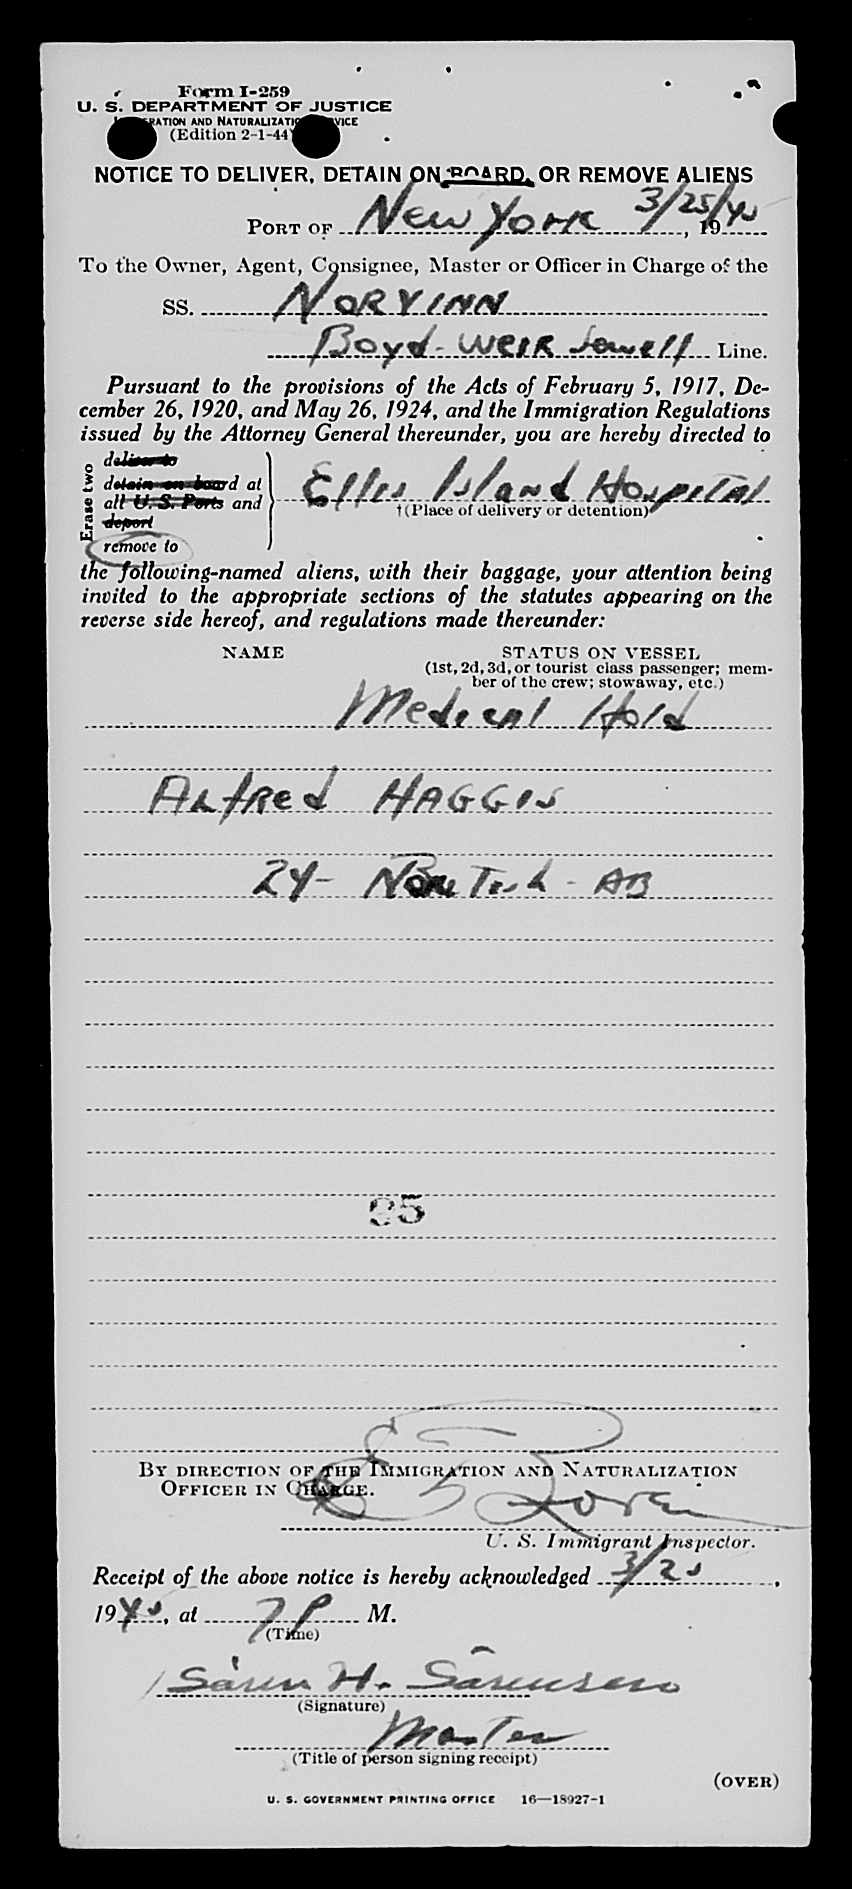 Form I-259
U. S. DEPARTMENT OF JUSTICE
AND NATURALIZATION
(Edition 2-1-44)
NOTICE TO DELIVER, DETAIN ON BOARD, OR REMOVE ALIENS
PORT OF New York 3/25/45, 19
To the Owner, Agent, Consignee, Master or Officer in Charge of the
SS. NORVINN
Boyd-Weir Sewell Line.
Pursuant to the provisions of the Acts of February 5, 1917, De-
cember 26, 1920, and May 26, 1924, and the Immigration Regulations
issued by the Attorney General thereunder, you are hereby directed to
Erase two
deliver to
detain on board at
all U. S. Ports and
deport
remove to
Ellis Island Hospital
†(Place of delivery or detention)
the following-named aliens, with their baggage, your attention being
invited to the appropriate sections of the statutes appearing on the
reverse side hereof, and regulations made thereunder:
NAME STATUS ON VESSEL
(1st, 2d, 3d, or tourist class passenger; mem-
ber of the crew; stowaway, etc.)
Medical Hold
Alfred HAGGIS
24- - AB
35
BY DIRECTION OF THE IMMIGRATION AND NATURALIZATION
OFFICER IN CHARGE.
U. S. Immigrant Inspector.
Receipt of the above notice is hereby acknowledged 3/25,
1945, at 7 P M.
(Time)
Sören H. Sörensen
(Signature)
Master
(Title of person signing receipt)
(OVER)
U. S. GOVERNMENT PRINTING OFFICE 16—18927-1